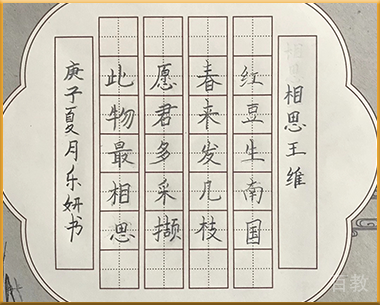 相思王维
红豆生南国
春来发几枝
愿君多采撷
此物最相思
庚子夏月乐妍书
百教